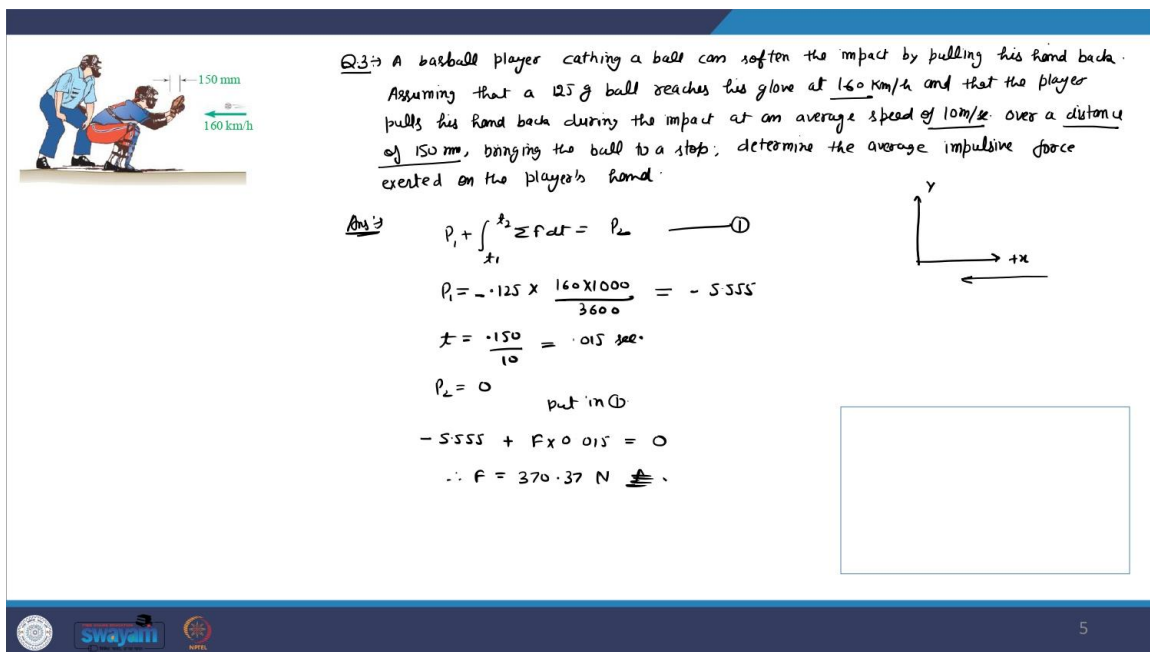 150 mm
160 km/h
Q.3:→ A basball player cathing a ball can soften the impact by pulling his hand back.
Assuming that a 125 g ball reaches his glove at 160 Km/h and that the player
pulls his hand back during the impact at an average speed of 10m/se. over a distance
of 150 mm, bringing the ball to a stop; determine the average impulsive force
exerted on the player's hand.
Ans:→
P₁ + ∫_{t₁}^{t₂} ΣF dt = P₂ ——— ①
Y
+x
P₁ = -.125 × (160×1000)/3600 = - 5.555
t = .150/10 = .015 sec.
P₂ = 0
put in ①
- 5.555 + F × 0.015 = 0
∴ F = 370.37 N
swayam
NPTEL
5